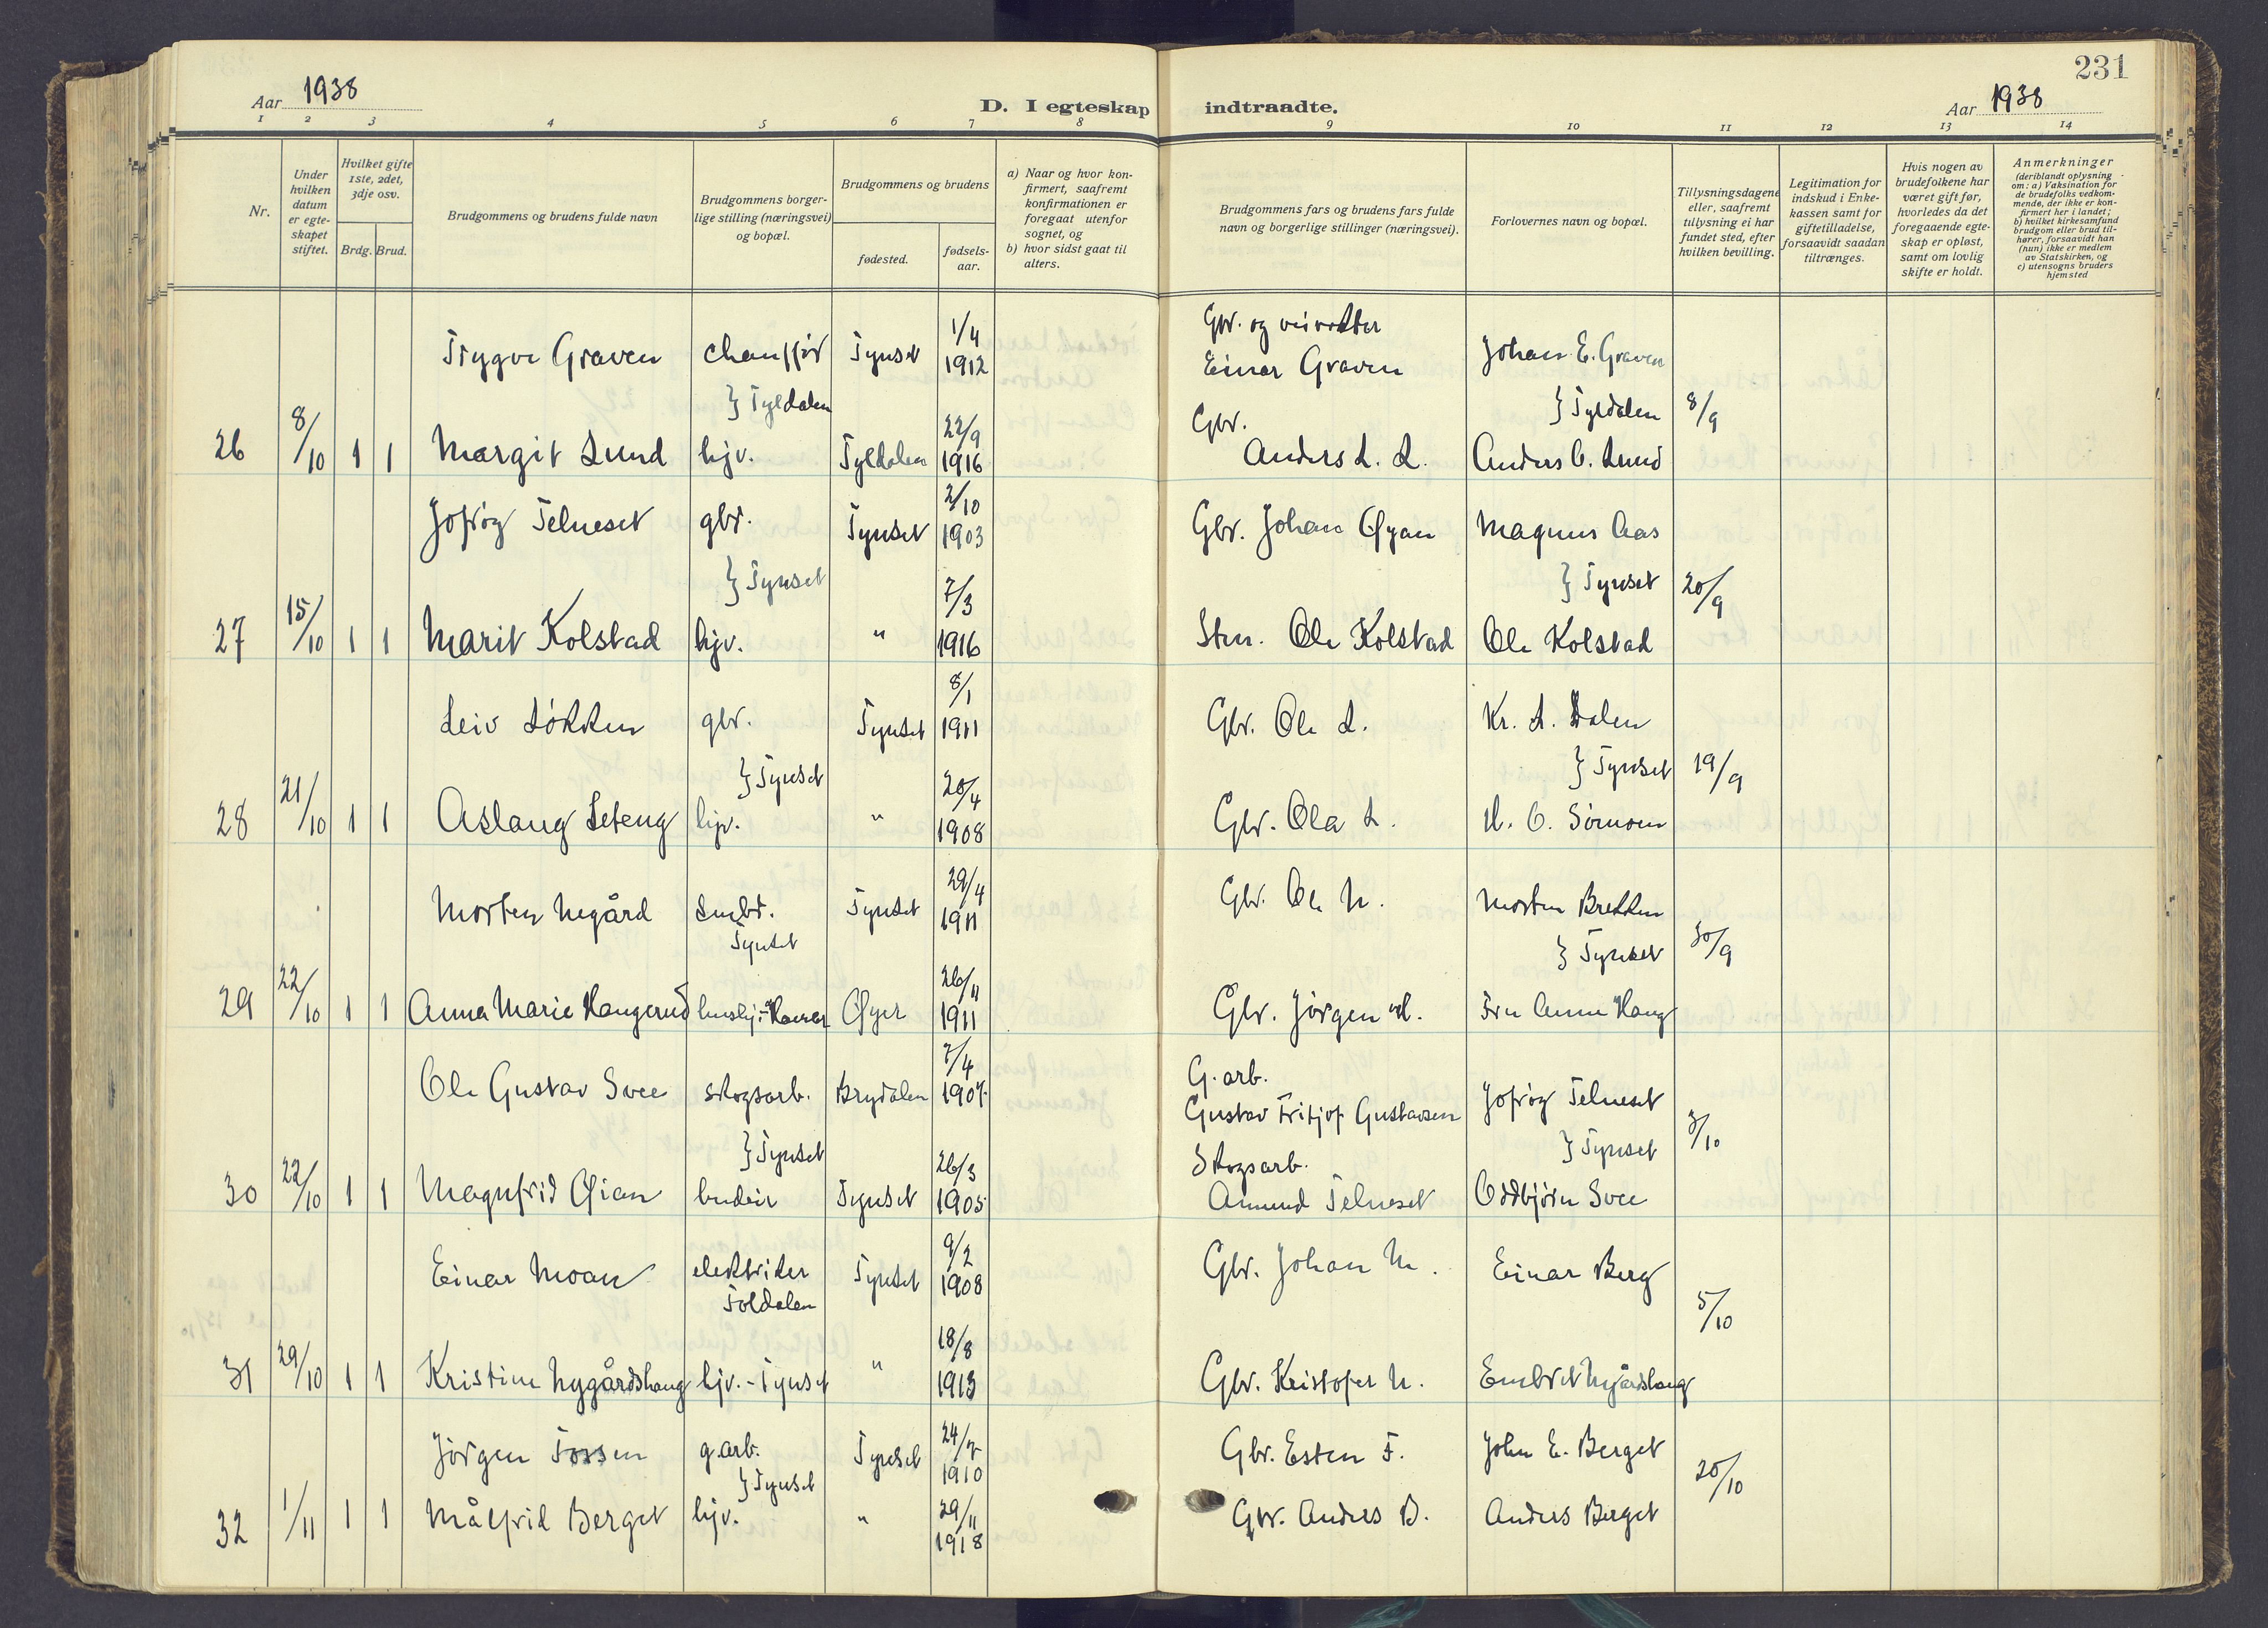 231
Aar 1938
D. I egteskap indtraadte.
Aar 1938
1 2 3 4 5 6 7 8 9 10 11 12 13 14
Nr.
Under hvilken datum er egteskapet stiftet.
Hvilket gifte 1ste, 2det, 3dje osv.
Brdg. Brud.
Brudgommens og brudens fulde navn
Brudgommens borgerlige stilling (næringsvei) og bopæl.
Brudgommens og brudens
fødested.
fødselsaar.
a) Naar og hvor konfirmert, saafremt konfirmationen er foregaat utenfor sognet, og
b) hvor sidst gaat til alters.
Brudgommens fars og brudens fars fulde navn og borgerlige stillinger (næringsvei).
Forlovernes navn og bopæl.
Tillysningsdagene eller, saafremt tillysning ei har fundet sted, efter hvilken bevilling.
Legitimation for indskud i Enkekassen samt for giftetilladelse, forsaavidt saadan tiltrænges.
Hvis nogen av brudefolkene har været gift før, hvorledes da det foregaaende egteskap er opløst, samt om lovlig skifte er holdt.
Anmerkninger (deriblandt oplysning om: a) Vaksination for de brudefolks vedkommende, der ikke er konfirmert her i landet; b) hvilket kirkesamfund brudgom eller brud tilhører, forsaavidt han (hun) ikke er medlem av Statskirken, og c) utensogns bruders hjemsted
Trygve Graven chauffør Tynset 1/4 1912 Gbr. og veivokter Einar Graven Johan E. Graven
} Tyldalen } Tyldalen 8/9
26 8/10 1 1 Margit Lund hjv. Tyldalen 22/9 1916 Gbr. Anders L. L. Anders O. Lund
Jofrög Telneset gbr. Tynset 2/10 1903 Gbr. Johan Öyan Magnus Aas
} Tynset } Tynset 20/9
27 15/10 1 1 Marit Kolstad hjv. " 7/3 1916 Stm. Ole Kolstad Ole Kolstad
Leiv Løkken gbr. Tynset 8/1 1911 Gbr. Ole L. Kr. L. Dalen
} Tynset } Tynset 19/9
28 21/10 1 1 Aslaug Leteng hjv. " 20/4 1908 Gbr. Ola L. H. O. Sørmoen
Morten Negård Småbr. Tynset 29/4 1911 Gbr. Ole N. Morten Brekken
Tynset } Tynset 30/9
29 22/10 1 1 Anna Marie Haugerud hushj. - Hamar Öyer 26/11 1911 Gbr. Jörgen H. Fru Anna Haug
Ole Gustav Svee skogsarb. Brydalen 7/4 1907 G. arb. Gustav Fritjof Gustavsen Jofrög Telneset
} Tynset } Tynset 3/10
30 22/10 1 1 Magnfrid Öian budeie Tynset 26/3 1905 Skogsarb. Amund Telneset Oddbjörn Svee
Einar Moan elektriker Tynset 9/2 1908 Gbr. Johan M. Einar Berg
Foldalen 5/10
31 29/10 1 1 Kristine Nygårdshaug hjv. - Tynset " 18/8 1913 Gbr. Kristofer N. Embret Nygårdshaug
Jörgen Fossen g.arb. Tynset 24/7 1910 Gbr. Esten F. John E. Berget
} Tynset 20/10
32 1/11 1 1 Målfrid Berget hjv. " 29/11 1918 Gbr. Anders B. Anders Berget